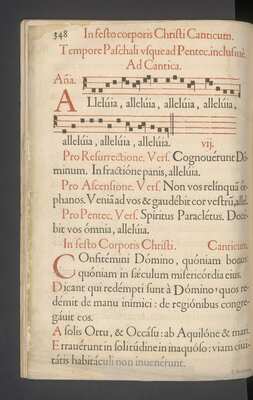 348 In festo corporis Christi Canticum.
Tempore Paschali vsque ad Pentec. inclusiuè.
Ad Cantica.
Aña.
ALleluia, alleluia, alleluia, alleluia,
alleluia, alleluia, alleluia. vij.
Pro Resurrectione. Vers. Cognouérunt Dó-
minum. In fractióne panis, alleluia.
Pro Ascensione. Vers. Non vos relinquā or-
phanos. Veniā ad vos & gaudébit cor vestrū, allel.
Pro Pentec. Vers. Spiritus Paraclétus. Docé-
bit vos ómnia, alleluia.
In festo Corporis Christi. Canticum.
COnfitémini Dómino, quóniam bonus:
quóniam in sæculum misericórdia eius.
Dicant qui redémpti sunt à Dómino: quos re-
démit de manu inimici: de regiónibus congre-
gáuit eos.
A solis Ortu, & Occásu: ab Aquilóne & mari.
Errauérunt in solitúdine in inaquóso: viam ciui-
tátis habitáculi non inuenérunt.